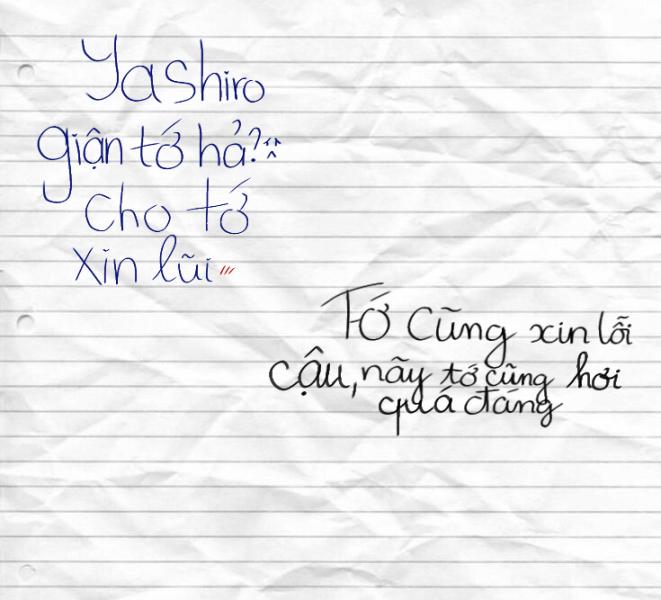 Yashiro
giận tớ hả? :^
cho tớ
xin lũi
Tớ cũng xin lỗi
cậu, nãy tớ cũng hơi
quá đáng